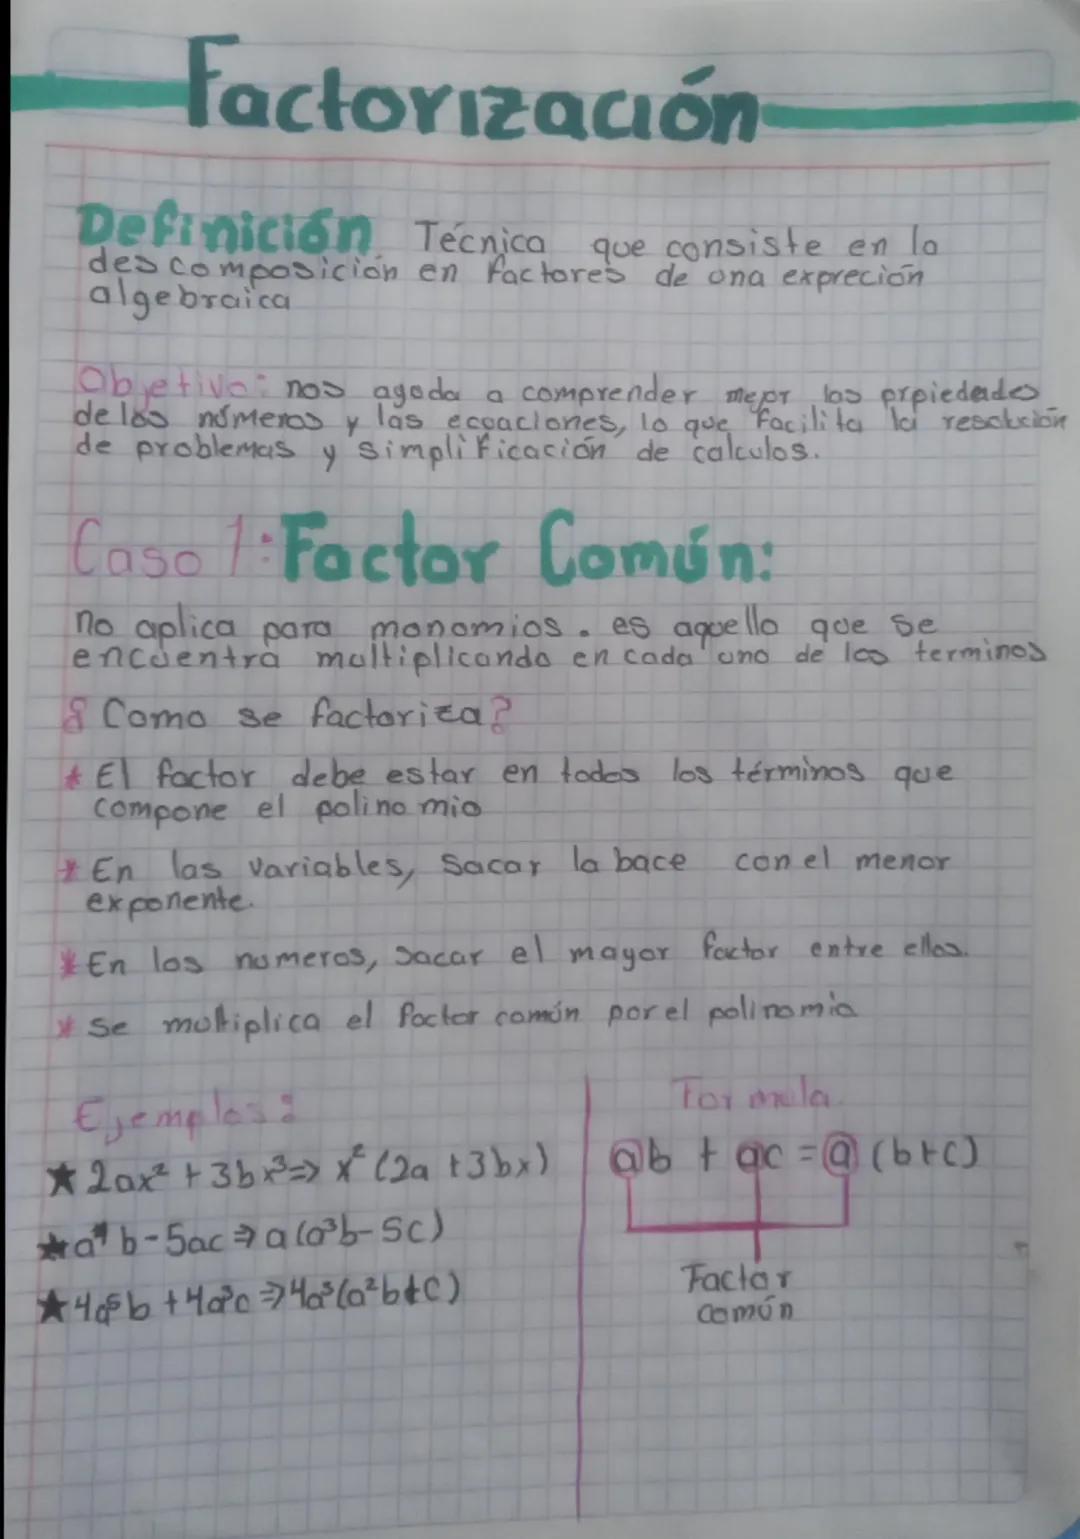 Factorización
Definición Técnica que consiste en la
descomposición en factores de una expreción
algebraica
Objetivo: nos aguda a comprender mejor las prpiedades
de los números y las ecuaciones, lo que facilita la resolución
de problemas y simplificación de calculos.
Caso 1: Factor Común:
no aplica para monomios. es aquello que se
encuentra multiplicando en cada uno de los terminos
¿Como se factoriza?
* El factor debe estar en todos los términos que
compone el polinomio
* En las variables, sacar la bace con el menor
exponente.
* En los numeros, sacar el mayor factor entre ellos.
* se multiplica el factor común por el polinomio
Ejemplos:
★ 2ax² + 3bx³ => x² (2a + 3bx)
★ a⁴b - 5ac => a (a³b - 5c)
★ 4a⁵b + 4a³c => 4a³ (a²b + c)
Formula
ab + ac = a (b+c)
Factor
común